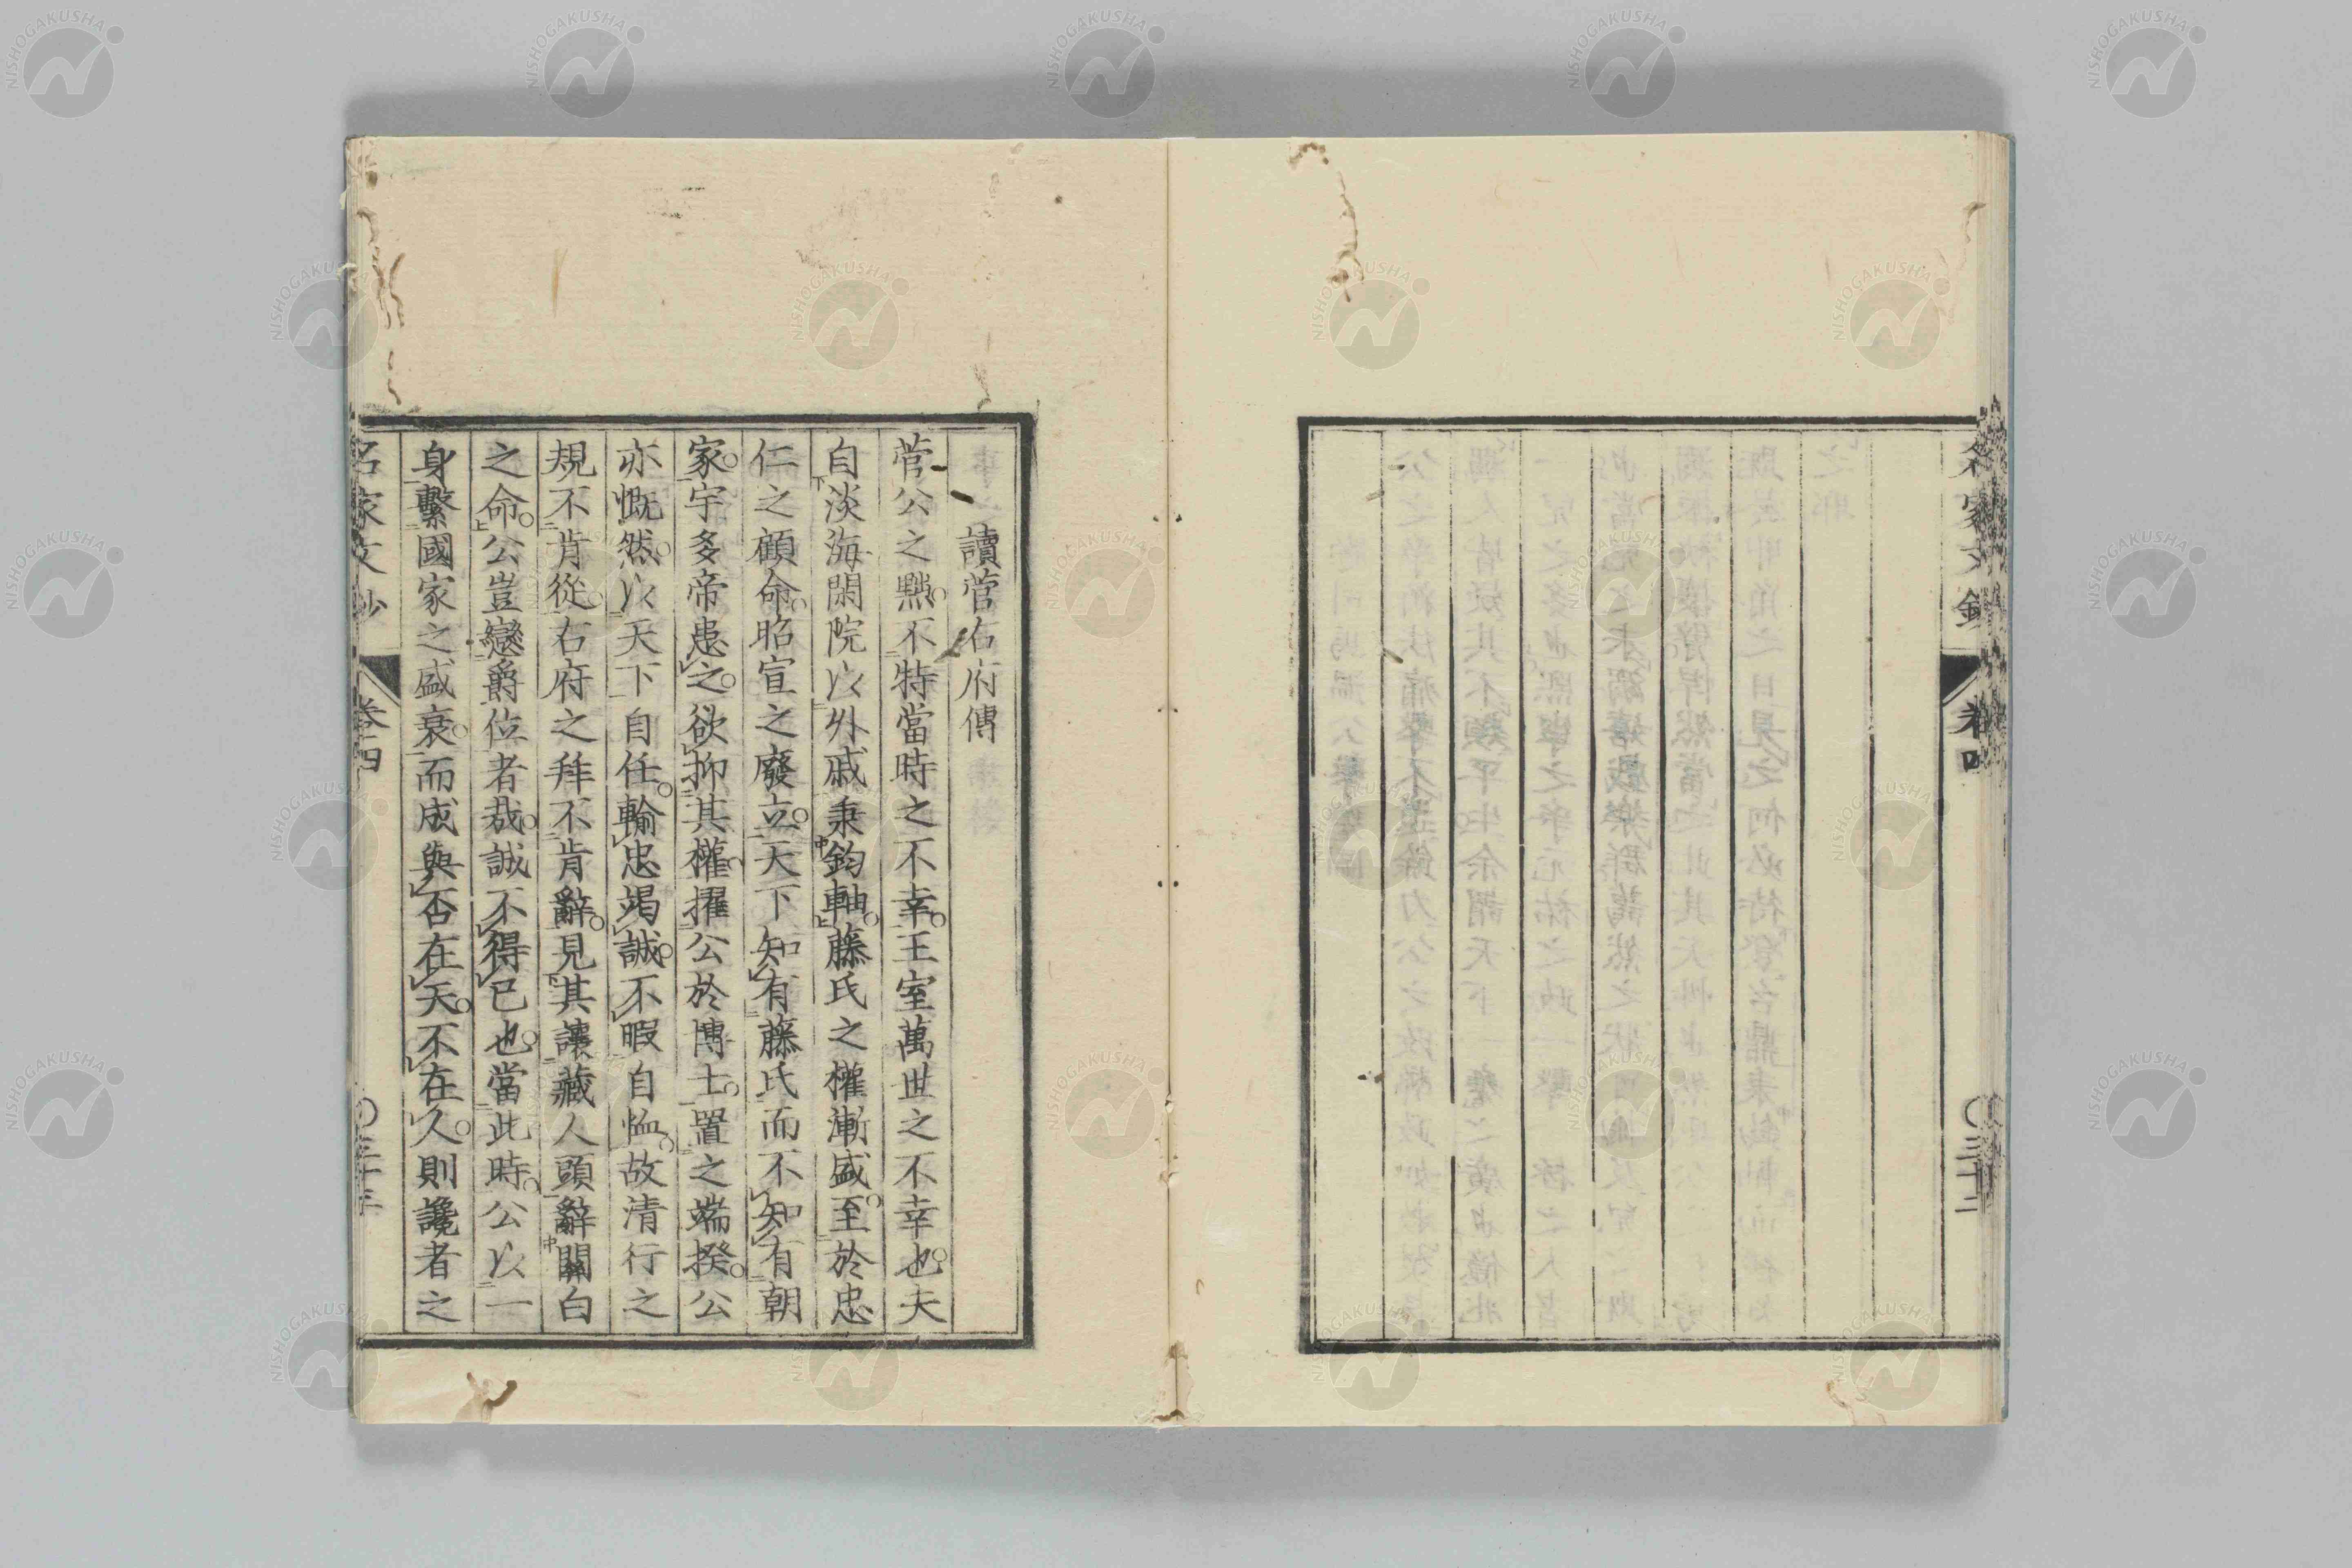 名家文鈔
卷四
〇三十二
讀菅右府傳
菅公之黜不特當時之不幸王室萬世之不幸也夫
自淡海閑院以外戚秉鈞軸藤氏之權漸盛至於忠
仁之顧命昭宣之廢立天下知有藤氏而不知有朝
家宇多帝患之欲抑其權擢公於博士置之端揆公
亦慨然以天下自任輸忠竭誠不暇自恤故清行之
規不肯從右府之拜不肯辭見其讓藏人頭辭關白
之命公豈戀爵位者哉誠不得已也當此時公以一
身繫國家之盛衰而成與否在天不在久則讒者之
名家文鈔
卷四
NISHOGAKUSHA